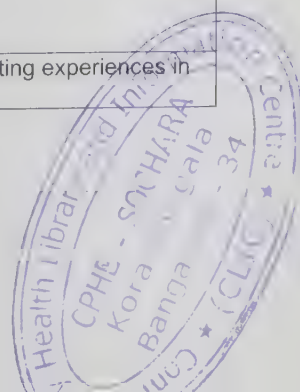 ting experiences in
Health Librar and In Centre
CPHE - SOCHARA
Kora gala
Banga - 34
(CLIC)